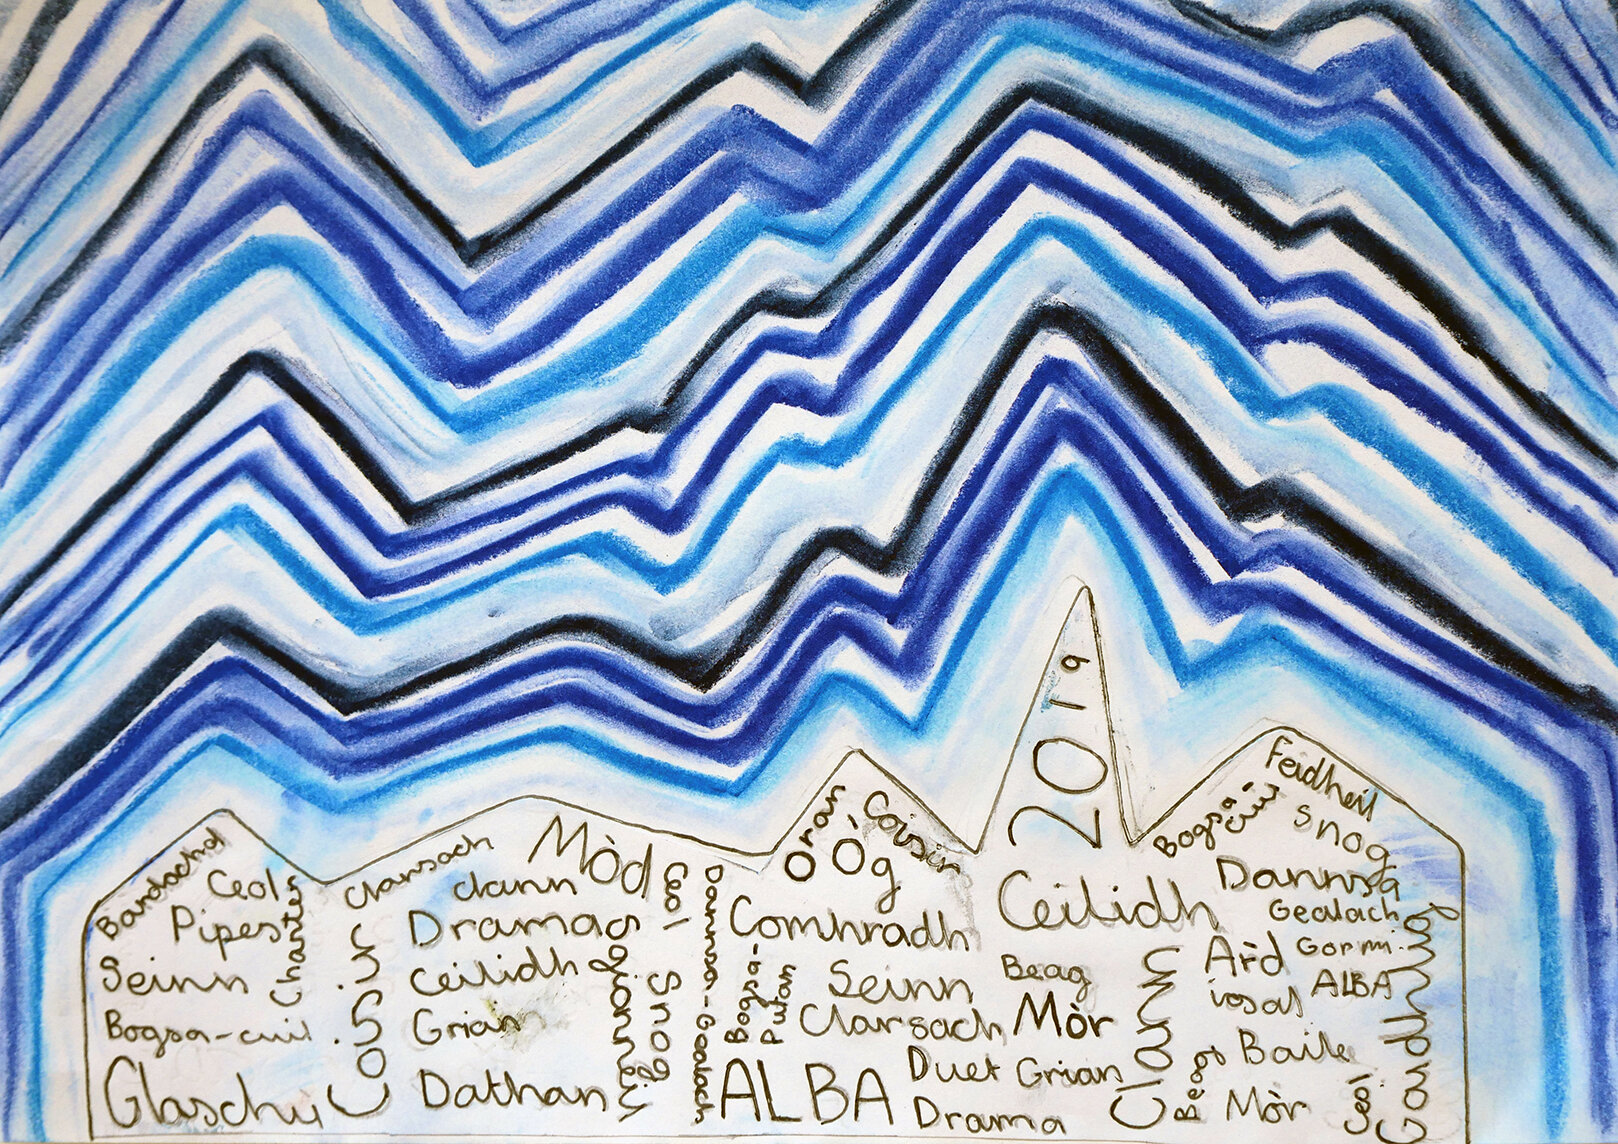 Bardachd
Ceol
Pipes
Chanter
Seinn
Bogsa-ciuil
Glaschu
clarsach
clann
Mòd
Drama
ceilidh
Grian
Dathan
Ceol
Snog
Dannsa-Gealach
Òran
Òg
Còisir
Comhradh
Bogsa-
Putan
Seinn
Clarsach
ALBA
Duet
Drama
2019
Ceilidh
Beag
Mòr
Grian
Ciamar
Bogsa
ciuil
Feidheil
snog
Dannsa
Gealach
Gorm
Àrd
ALBA
iosal
Baile
Beag
Mòr
Ceòl